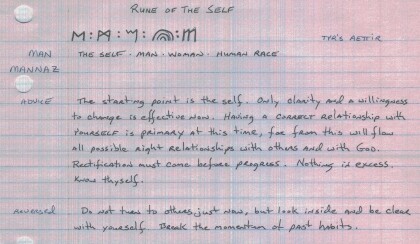 RUNE OF THE SELF
TYR'S AETTIR
MAN THE SELF · MAN · WOMAN · HUMAN RACE
MANNAZ
ADVICE The starting point is the self. Only clarity and a willingness
to change is effective now. Having a correct relationship with
yourself is primary at this time, for from this will flow
all possible right relationships with others and with God.
Rectification must come before progress. Nothing in excess.
Know thyself.
REVERSED Do not turn to others just now, but look inside and be clear
with yourself. Break the momentum of past habits.